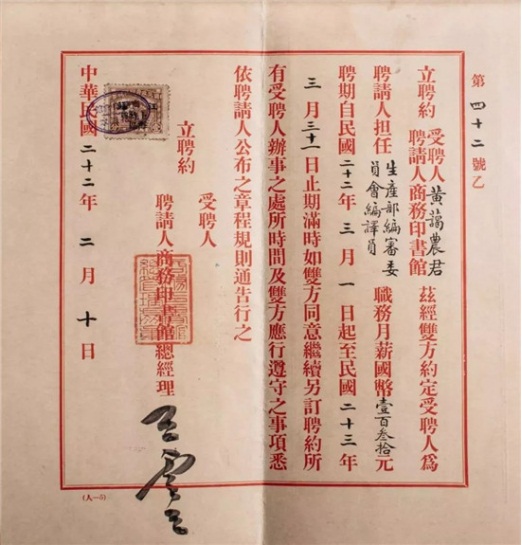 第四十二號乙
立聘約 受聘人黃藹農君 聘請人商務印書館 茲經雙方約定受聘人為
聘請人担任生產部編審委員會編譯員職務月薪國幣壹百叁拾元
聘期自民國二十二年三月一日起至民國二十三年
三月三十一日止期滿時如雙方同意繼續另訂聘約所
有受聘人辦事之處所時間及雙方應行遵守之事項悉
依聘請人公布之章程規則通告行之
立聘約 受聘人
聘請人商務印書館總經理
王雲五
中華民國二十二年二月十日
(人—3)